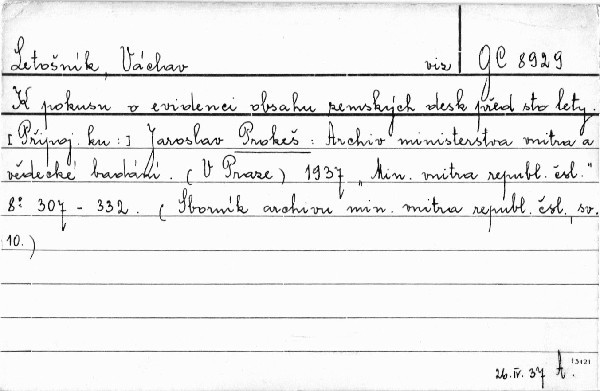 Letošník, Václav viz GC 8929
K pokusu o evidenci obsahu zemských desk před sto lety.
[Připoj. ku:] Jaroslav Prokeš: Archiv ministerstva vnitra a
vědecké badání. (V Praze) 1937 „Min. vnitra republ. čsl."
8° 307 - 332. (Sborník archivu min. vnitra republ. čsl., sv.
10.)
26. IV. 37 A.
13121